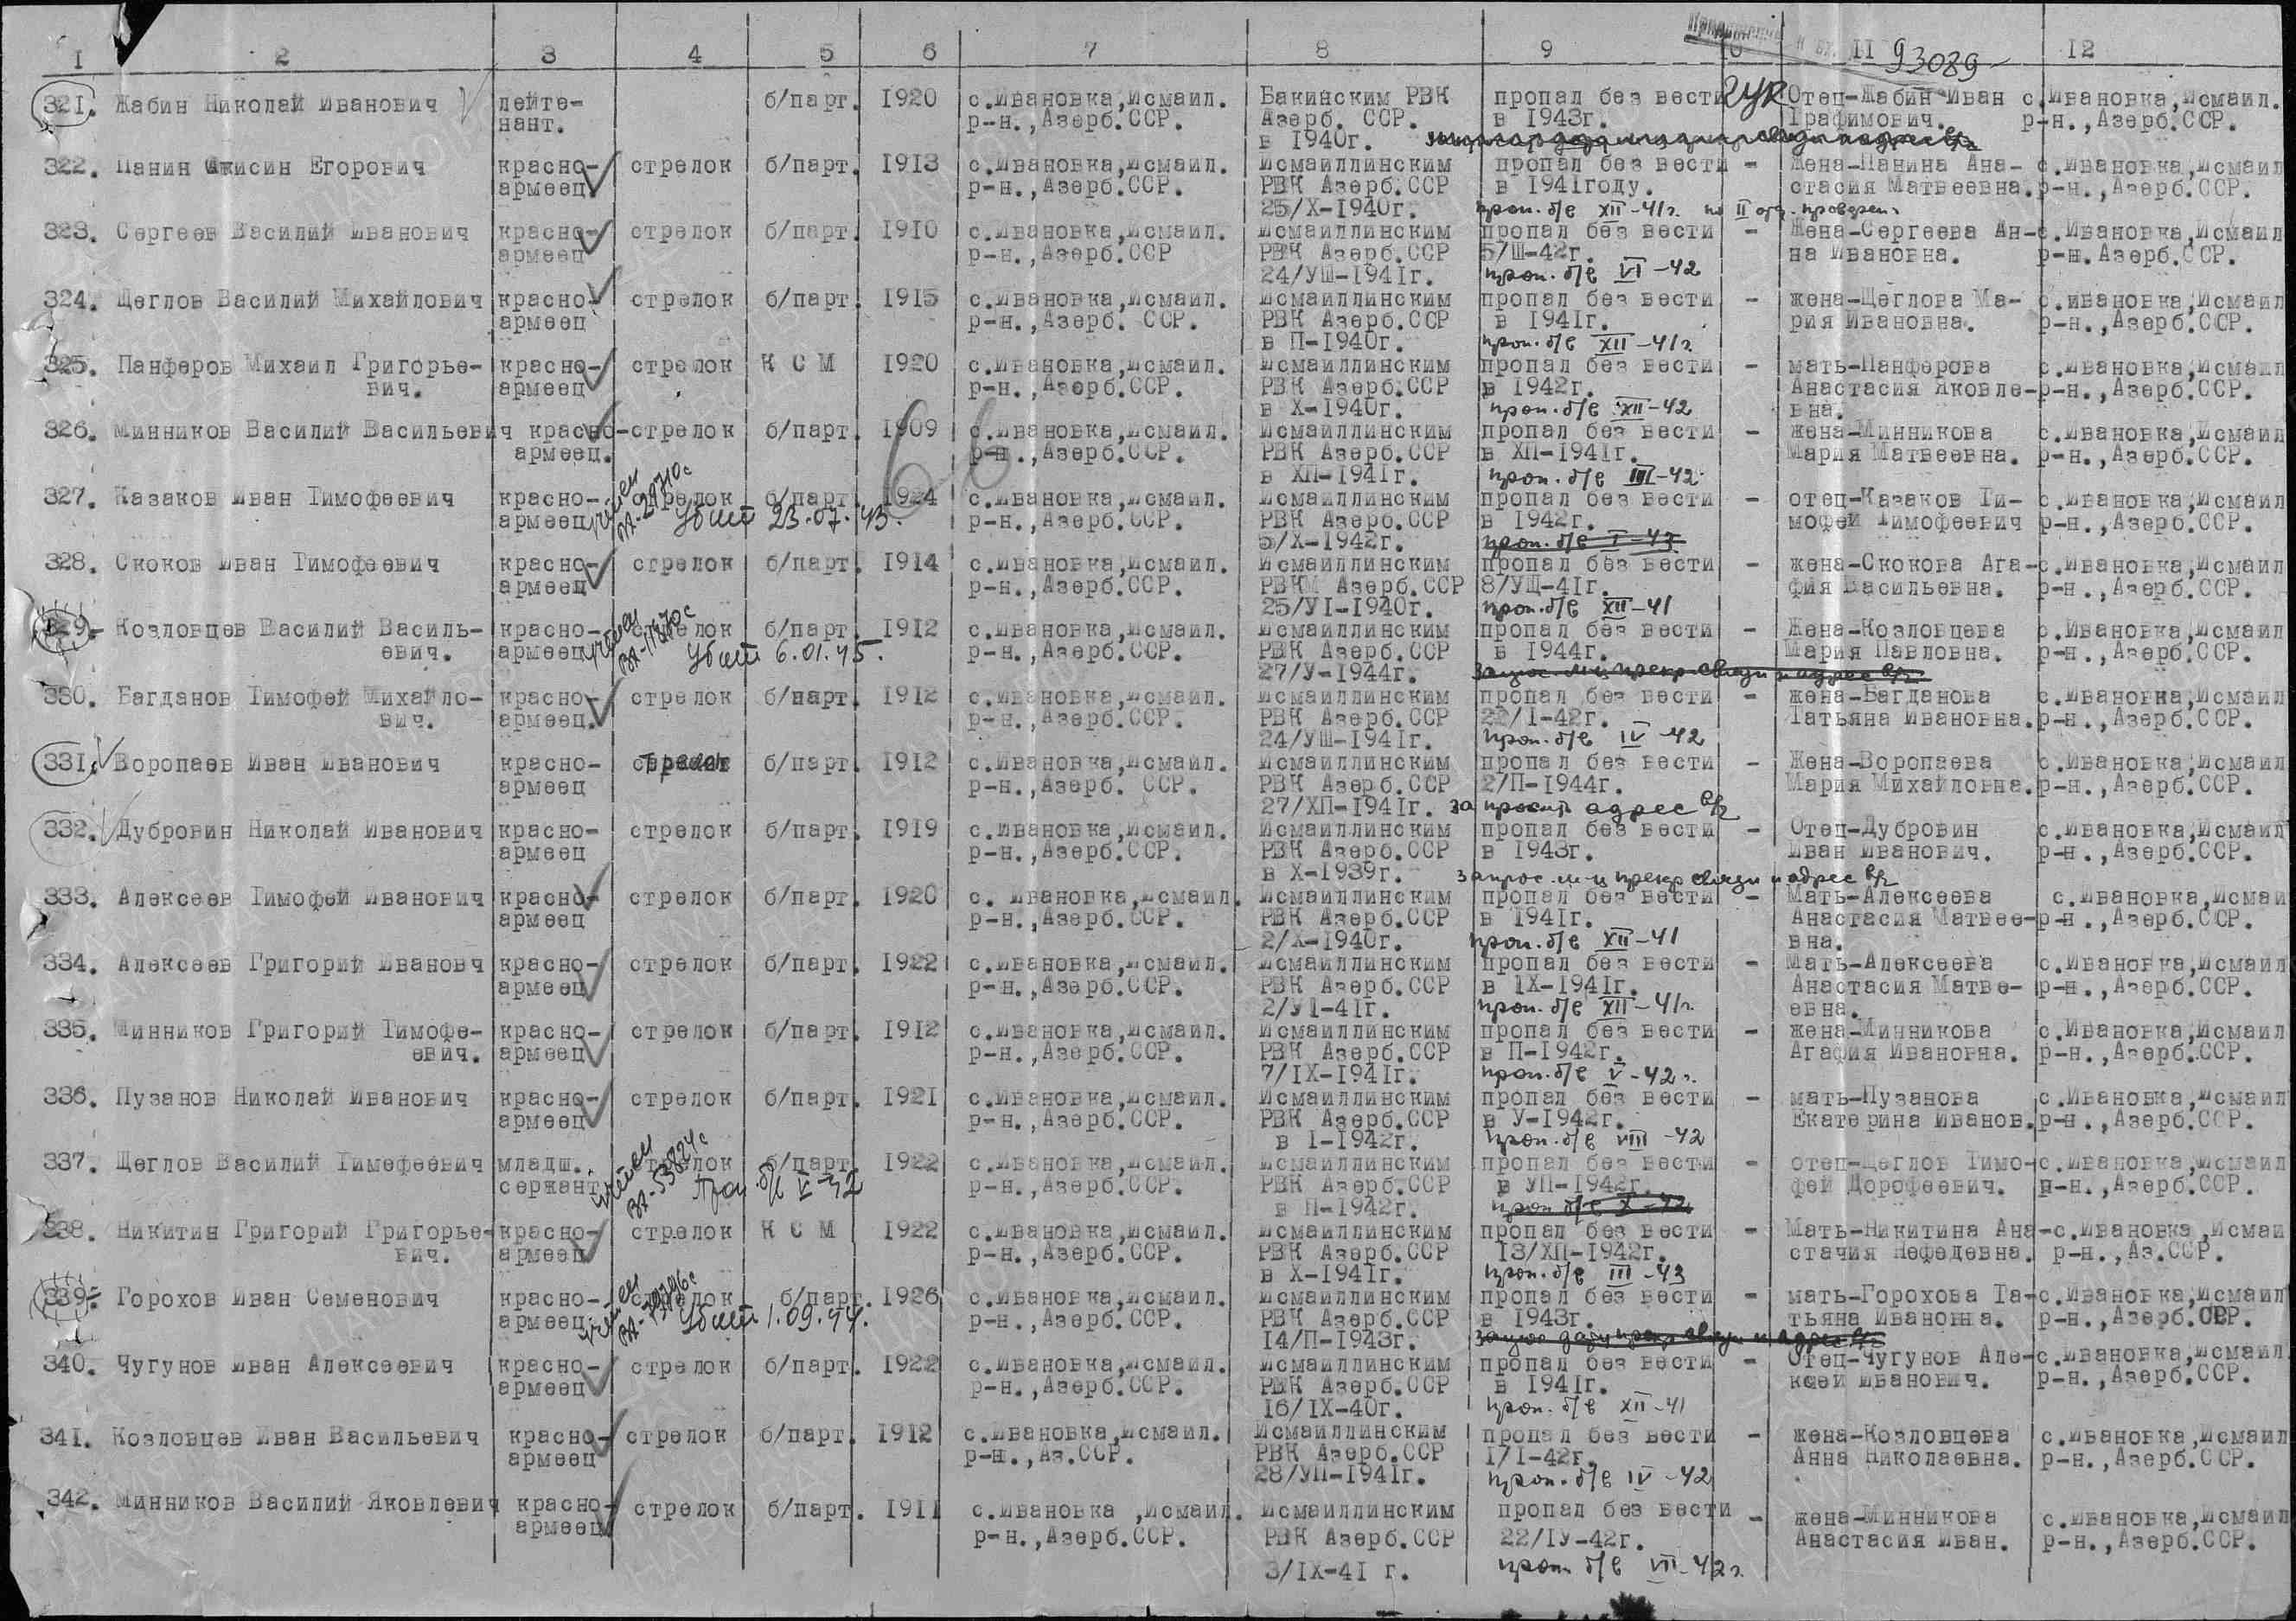 Приложение к вх. 93089
1 2 3 4 5 6 7 8 9 10 11 12
321. Жабин Николай Иванович лейте- б/парт. 1920 с.Ивановка,Исмаил. Бакинским РВК пропал без вести ГУК Отец-Жабин Иван с.Ивановка,Исмаил.
нант. р-н.,Азерб.ССР. Азерб. ССР. в 1943г. Трафимович. р-н.,Азерб.ССР.
в 1940г.
322. Панин Егорович красно- стрелок б/парт. 1913 с.Ивановка,Исмаил. Исмаиллинским пропал без вести - Жена-Панина Ана- с.Ивановка,Исмаил
армеец р-н.,Азерб.ССР. РВК Азерб.ССР в 1941году. стасия Матвеевна. р-н.,Азерб.ССР.
25/Х-1940г. проп. б/в XII-41г. по II отд. проверен
323. Сергеев Василий Иванович красно- стрелок б/парт. 1910 с.Ивановка,Исмаил. Исмаиллинским пропал без вести - Жена-Сергеева Ан- с.Ивановка,Исмаил
армеец р-н.,Азерб.ССР РВК Азерб.ССР 5/Ш-42г. на Ивановна. р-н.Азерб.ССР.
24/УШ-1941г. проп. б/в VI-42
324. Щеглов Василий Михайлович красно- стрелок б/парт. 1915 с.Ивановка,Исмаил. Исмаиллинским пропал без вести - жена-Щеглова Ма- с.Ивановка,Исмаил
армеец р-н.,Азерб. ССР. РВК Азерб.ССР в 1941г. рия Ивановна. р-н.,Азерб.ССР.
в П-1940г. проп. б/в XII-41г.
325. Панферов Михаил Григорье- красно- стрелок К С М 1920 с.Ивановка,Исмаил. Исмаиллинским пропал без вести - мать-Панферова с.Ивановка,Исмаил
вич. армеец р-н.,Азерб.ССР. РВК Азерб.ССР в 1942г. Анастасия Яковле- р-н.,Азерб.ССР.
в Х-1940г. проп. б/в XII-42 вна.
326. Минников Василий Васильевич красно- стрелок б/парт. 1909 с.Ивановка,Исмаил. Исмаиллинским пропал без вести - жена-Минникова с.Ивановка,Исмаил
армеец. р-н.,Азерб.ССР. РВК Азерб.ССР в ХП-1941г. Мария Матвеевна. р-н.,Азерб.ССР.
в ХП-1941г. проп. б/в III-42
327. Казаков Иван Тимофеевич красно- стрелок б/парт 1924 с.Ивановка,Исмаил. Исмаиллинским пропал без вести - отец-Казаков Ти- с.Ивановка,Исмаил
армеец учтен ВА-29710с Убит 23.07.43. р-н.,Азерб.ССР. РВК Азерб.ССР в 1942г. мофей Тимофеевич р-н.,Азерб.ССР.
5/Х-1942г. проп. б/в I-43
328. Скоков Иван Тимофеевич красно- стрелок б/парт. 1914 с.Ивановка,Исмаил. Исмаиллинским пропал без вести - жена-Скокова Ага- с.Ивановка,Исмаил
армеец р-н.,Азерб.ССР. РВК Азерб.ССР 8/УЩ-41г. фия Васильевна. р-н.,Азерб.ССР.
25/УІ-1940г. проп. б/в XII-41
329. Козловцев Василий Василь- красно- стрелок б/парт. 1912 с.Ивановка,Исмаил. Исмаиллинским пропал без вести - Жена-Козловцева с.Ивановка,Исмаил
евич. армеец учтен Убит 6.01.45. р-н.,Азерб.ССР. РВК Азерб.ССР в 1944г. Мария Павловна. р-н.,Азерб.ССР.
27/У-1944г.
330. Багданов Тимофей Михайло- красно- стрелок б/парт. 1912 с.Ивановка,Исмаил. Исмаиллинским пропал без вести - жена-Багданова с.Ивановка,Исмаил
вич. армеец. р-н.,Азерб.ССР. РВК Азерб.ССР 22/1-42г. Татьяна Ивановна. р-н.,Азерб.ССР.
24/УШ-1941г. проп. б/в IV-42
331. Воропаев Иван Иванович красно- б/парт. 1912 с.Ивановка,Исмаил. Исмаиллинским пропал без вести - Жена-Воропаева с.Ивановка,Исмаил
армеец р-н.,Азерб. ССР. РВК Азерб.ССР 2/П-1944г. Мария Михайловна. р-н.,Азерб.ССР.
27/ХП-1941г. адрес в/ч
332. Дубровин Николай Иванович красно- стрелок б/парт. 1919 с.Ивановка,Исмаил. Исмаиллинским пропал без вести - Отец-Дубровин с.Ивановка,Исмаил
армеец р-н.,Азерб.ССР. РВК Азерб.ССР в 1943г. Иван Иванович. р-н.,Азерб.ССР.
в Х-1939г. запрос м-ц прекр связи и адрес в/ч
333. Алексеев Тимофей Иванович красно- стрелок б/парт. 1920 с. Ивановка,Исмаил. Исмаиллинским пропал без вести - Мать-Алексеева с.Ивановка,Исмаи
армеец р-н.,Азерб.ССР. РВК Азерб.ССР в 1941г. Анастасия Матвее- р-н.,Азерб.ССР.
2/Х-1940г. проп. б/в XII-41 вна.
334. Алексеев Григорий Ивановч красно- стрелок б/парт. 1922 с.Ивановка,Исмаил. Исмаиллинским пропал без вести - Мать-Алексеева с.Ивановка,Исмаил
армеец р-н.,Азерб.ССР. РВК Азерб.ССР в 1Х-1941г. Анастасия Матве- р-н.,Азерб.ССР.
2/У1-41г. проп. б/в XII-41г. евна.
335. Минников Григорий Тимофе- красно- стрелок б/парт. 1912 с.Ивановка,Исмаил. Исмаиллинским пропал без вести - жена-Минникова с.Ивановка,Исмаил
евич. армеец р-н.,Азерб.ССР. РВК Азерб.ССР в П-1942г. Агафия Ивановна. р-н.,Азерб.ССР.
7/1Х-1941г. проп. б/в V-42г.
336. Пузанов Николай Иванович красно- стрелок б/парт. 1921 с.Ивановка,Исмаил. Исмаиллинским пропал без вести - мать-Пузанова с.Ивановка,Исмаил
армеец р-н.,Азерб.ССР. РВК Азерб.ССР в У-1942г. Екатерина Иванов. р-н.,Азерб.ССР.
в 1-1942г. проп. б/в VIII-42
337. Щеглов Василий Тимофеевич младш. стрелок б/парт 1922 с.Ивановка,Исмаил. Исмаиллинским пропал без вести - отец-Щеглов Тимо- с.Ивановка,Исмаил
сержант учтен ВА-53824с Проп. б/в V-42 р-н.,Азерб.ССР. РВК Азерб.ССР в УП-1942г. фей Дорофеевич. н-н.,Азерб.ССР.
в П-1942г. проп б/в X-42
338. Никитин Григорий Григорье- красно- стрелок К С М 1922 с.Ивановка,Исмаил. Исмаиллинским пропал без вести - Мать-Никитина Ана- с.Ивановка,Исмаи
вич. армеец р-н.,Азерб.ССР. РВК Азерб.ССР 13/ХП-1942г. стачия Нефедевна. р-н.,Аз.ССР.
в Х-1941г. проп. б/в III-43
339. Горохов Иван Семенович красно- стрелок б/парт. 1926 с.Ивановка,Исмаил. Исмаиллинским пропал без вести - мать-Горохова Та- с.Ивановка,Исмаил
армеец. учтен Убит 1.09.44. р-н.,Азерб.ССР. РВК Азерб.ССР в 1943г. тьяна Ивановна. р-н.,Азерб.ССР.
14/П-1943г.
340. Чугунов Иван Алексеевич красно- стрелок б/парт. 1922 с.Ивановка,Исмаил. Исмаиллинским пропал без вести - Отец-Чугунов Але- с.Ивановка,Исмаил
армеец р-н.,Азерб.ССР. РВК Азерб.ССР в 1941г. ксей Иванович. р-н.,Азерб.ССР.
16/1Х-40г. проп. б/в XII-41
341. Козловцев Иван Васильевич красно- стрелок б/парт. 1912 с.Ивановка,Исмаил. Исмаиллинским пропал без вести - жена-Козловцева с.Ивановка,Исмаил
армеец р-н.,Аз.ССР. РВК Азерб.ССР 171-42г. Анна Николаевна. р-н.,Азерб.ССР.
28/УП-1941г. проп. б/в IV-42
342. Минников Василий Яковлевич красно- стрелок б/парт. 1911 с.Ивановка ,Исмаил. Исмаиллинским пропал без вести - жена-Минникова с.Ивановка,Исмаил
армеец р-н.,Азерб.ССР. РВК Азерб.ССР 22/1У-42г. Анастасия Иван. р-н.,Азерб.ССР.
3/1Х-41 г. проп б/в VII-42г.